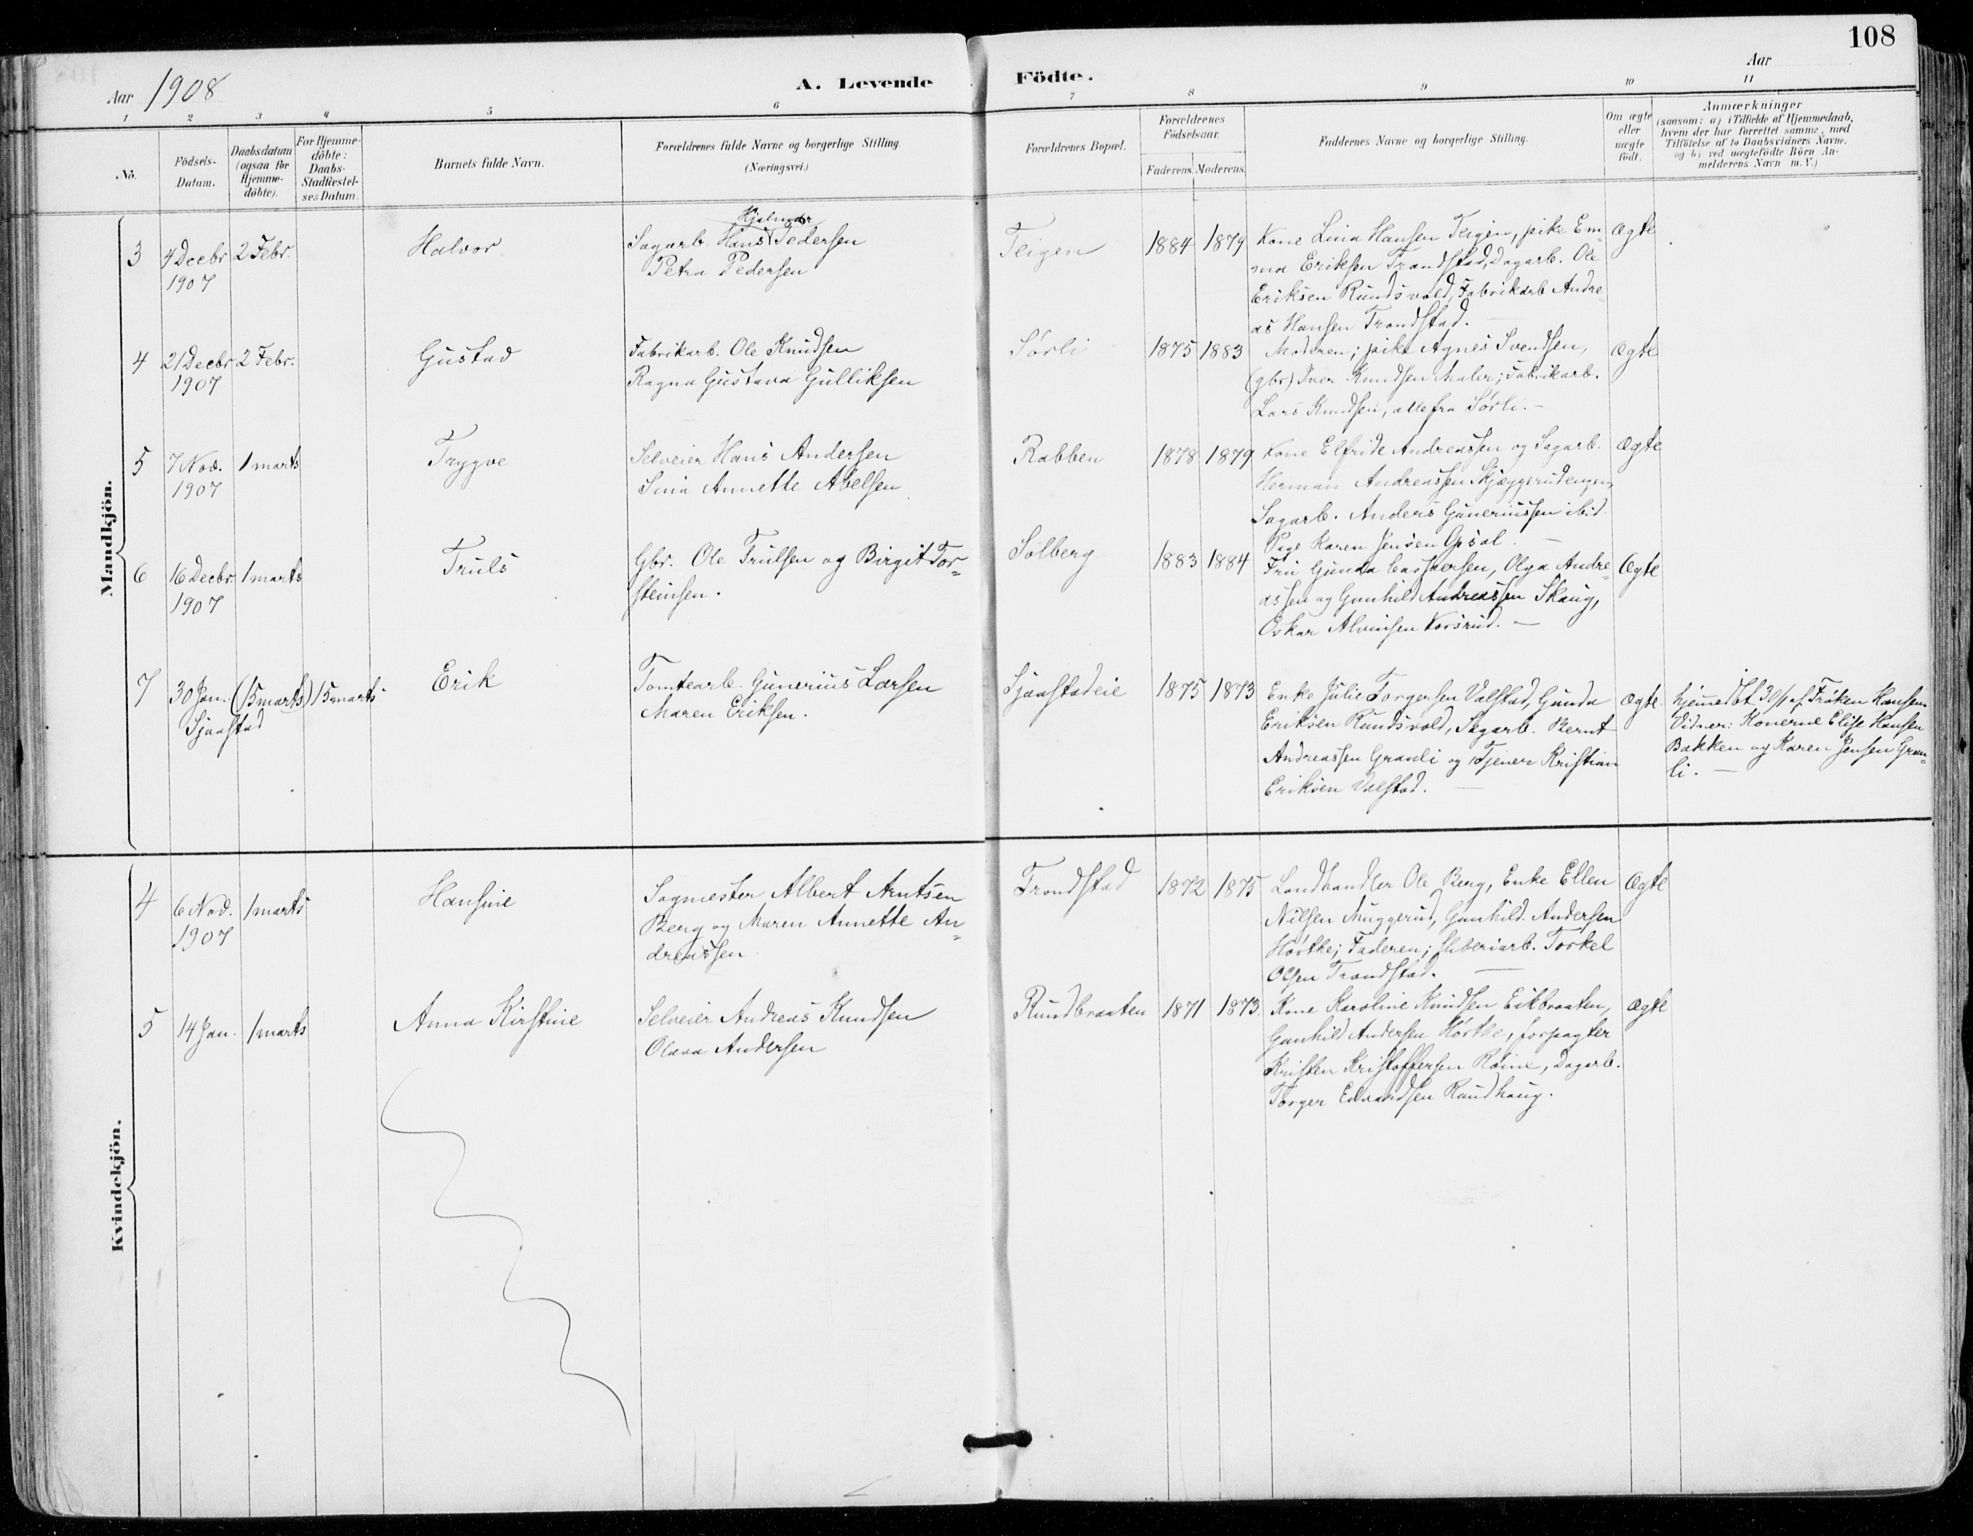 108
Aar 1908
A. Levende Födte.
Aar
1 2 3 4 5 6 7 8 9 10 11
No.
Födsels-Datum.
Daabsdatum (ogsaa for Hjemme-döbte).
For Hjemme-döbte: Daabs-Stadfæstel-ses Datum.
Barnets fulde Navn.
Forældrenes fulde Navne og borgerlige Stilling (Næringsvei.)
Forældrenes Bopæl.
Forældrenes Födselsaar.
Faderens. Moderens.
Faddernes Navne og borgerlige Stilling.
Om ægte eller uægte födt.
Anmærkninger
(saasom: a) i Tilfælde af Hjemmedaab,
hvem der har forrettet samme, med
Tilföielse af to Daabsvidners Navne,
og b) ved uægtefödte Börn An-
melderens Navn m. V.)
Mandkjön.
3 4 Decbr 1907 2 Febr. Halvor
Sagarb. Hans Hjalmar Pedersen
Petra Pedersen
Teigen 1884 1879
Kone Lina Hansen Teigen, pike Em-
ma Eriksen Trondstad, Dagarb. Ole
Eriksen Rundsvold, Fabrikarb Andre-
as Hansen Trondstad. —
Ægte
4 21 Decbr 1907 2 Febr. Gustav
Fabrikarb. Ole Knudsen
Ragna Gustava Gulliksen
Sørli 1875 1883
Moderen; pike Agnes Svendsen,
(gbr) Iver Knudsen Maler; Fabrikarb.
Lars Knudsen, alle fra Sørli. —
Ægte
5 7 Nov. 1907 1 marts Trygve
Selveier Hans Andersen
Sina Annette Abelsen
Rabben 1878 1879
Kone Elfride Andreassen og Sagarb.
Herman Andreassen Skjæggerudengen,
Sagarb. Anders Guneriussen ibid.
Pige Karen Jensen Opsal. —
Ægte
6 16 Decbr 1907 1 marts Truls
Gbr. Ole Trulsen og Birgit Tor-
steinsen.
Solberg 1883 1884
Fru Gunda Caspersen, Olga Andre-
assen og Gunhild Andreassen Skaug,
Oskar Alvinsen Korsrud. —
Ægte
7 30 Jan. Sjaastad (15 marts) 15 marts Erik
Tomtearb. Gunerius Larsen
Maren Eriksen.
Sjaastadeie 1875 1873
Enke Julie Torgersen Valstad, Gunda
Eriksen Rundsvold, Sagarb. Bernt
Andreassen Granli og Tjener Kristian
Eriksen Valstad. —
Ægte
hjemedøbt 30/1 af Frøken Hansen
Vidner: Konerne Elise Hansen
Bakken og Karen Jensen Gran-
li. —
Kvindekjön.
4 6 Nov. 1907 1 marts Hansine
Sagmester Albert Arntsen
Berg og Maren Annette An-
dreassen
Trondstad 1872 1875
Landhandler Ole Berg, Enke Ellen
Nilsen Muggerud, Gunhild Andersen
Hørthe; Faderen; sliberiarb. Torkel
Olsen Trondstad. —
Ægte
5 14 Jan. 1 marts Anna Kirstine
Selveier Andreas Knudsen
Olava Andersen
Rundbraaten 1871 1873
Kone Karoline Knudsen Eikbraaten,
Gunhild Andersen Hørthe, forpagter
Kristen Kristoffersen Røine, Dagarb.
Torger Edvardsen Rundhaug.
Ægte